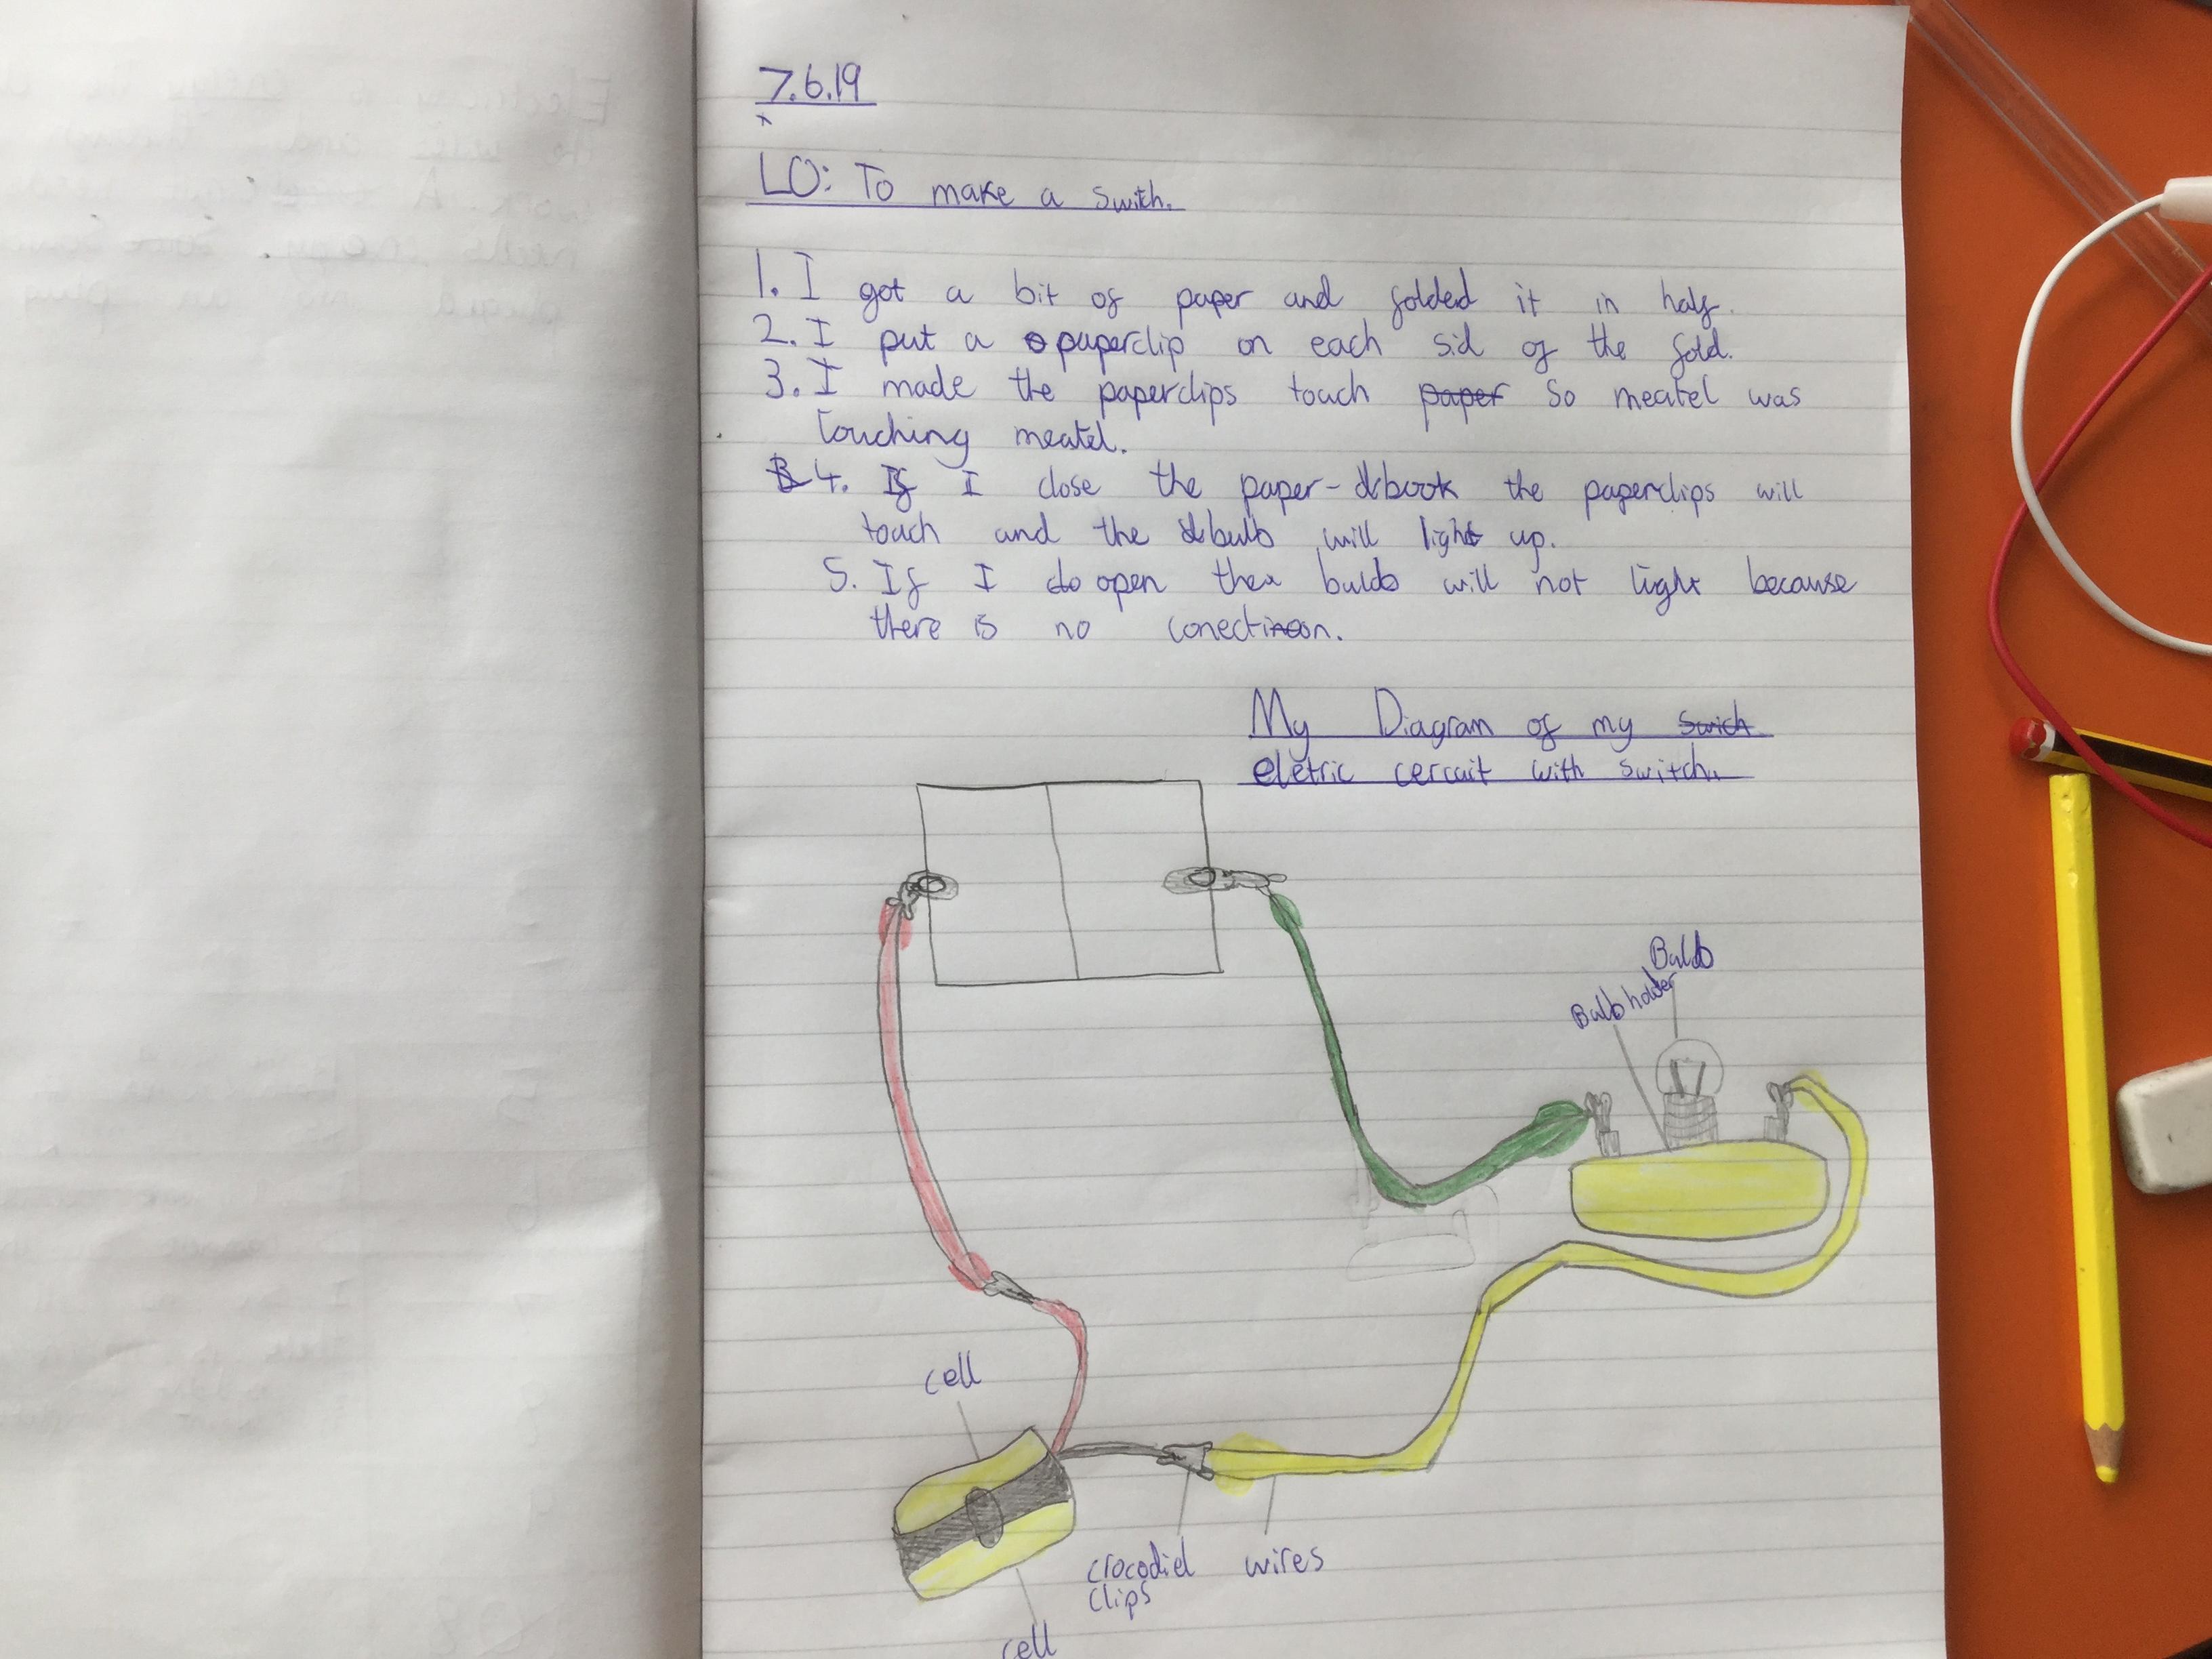 7.6.19
LO: To make a swith.
1. I got a bit of paper and folded it in half.
2. I put a paperclip on each sid of the fold.
3. I made the paperclips touch paper so meatel was
touching meatel.
4. If I close the paper-book the paperclips will
touch and the bulb will light up.
5. If I do open the bulb will not light because
there is no conection.
My Diagram of my swich
eletric cercuit with switch.
Bulb
Bulb holder
cell
crocodiel wires
clips
cell